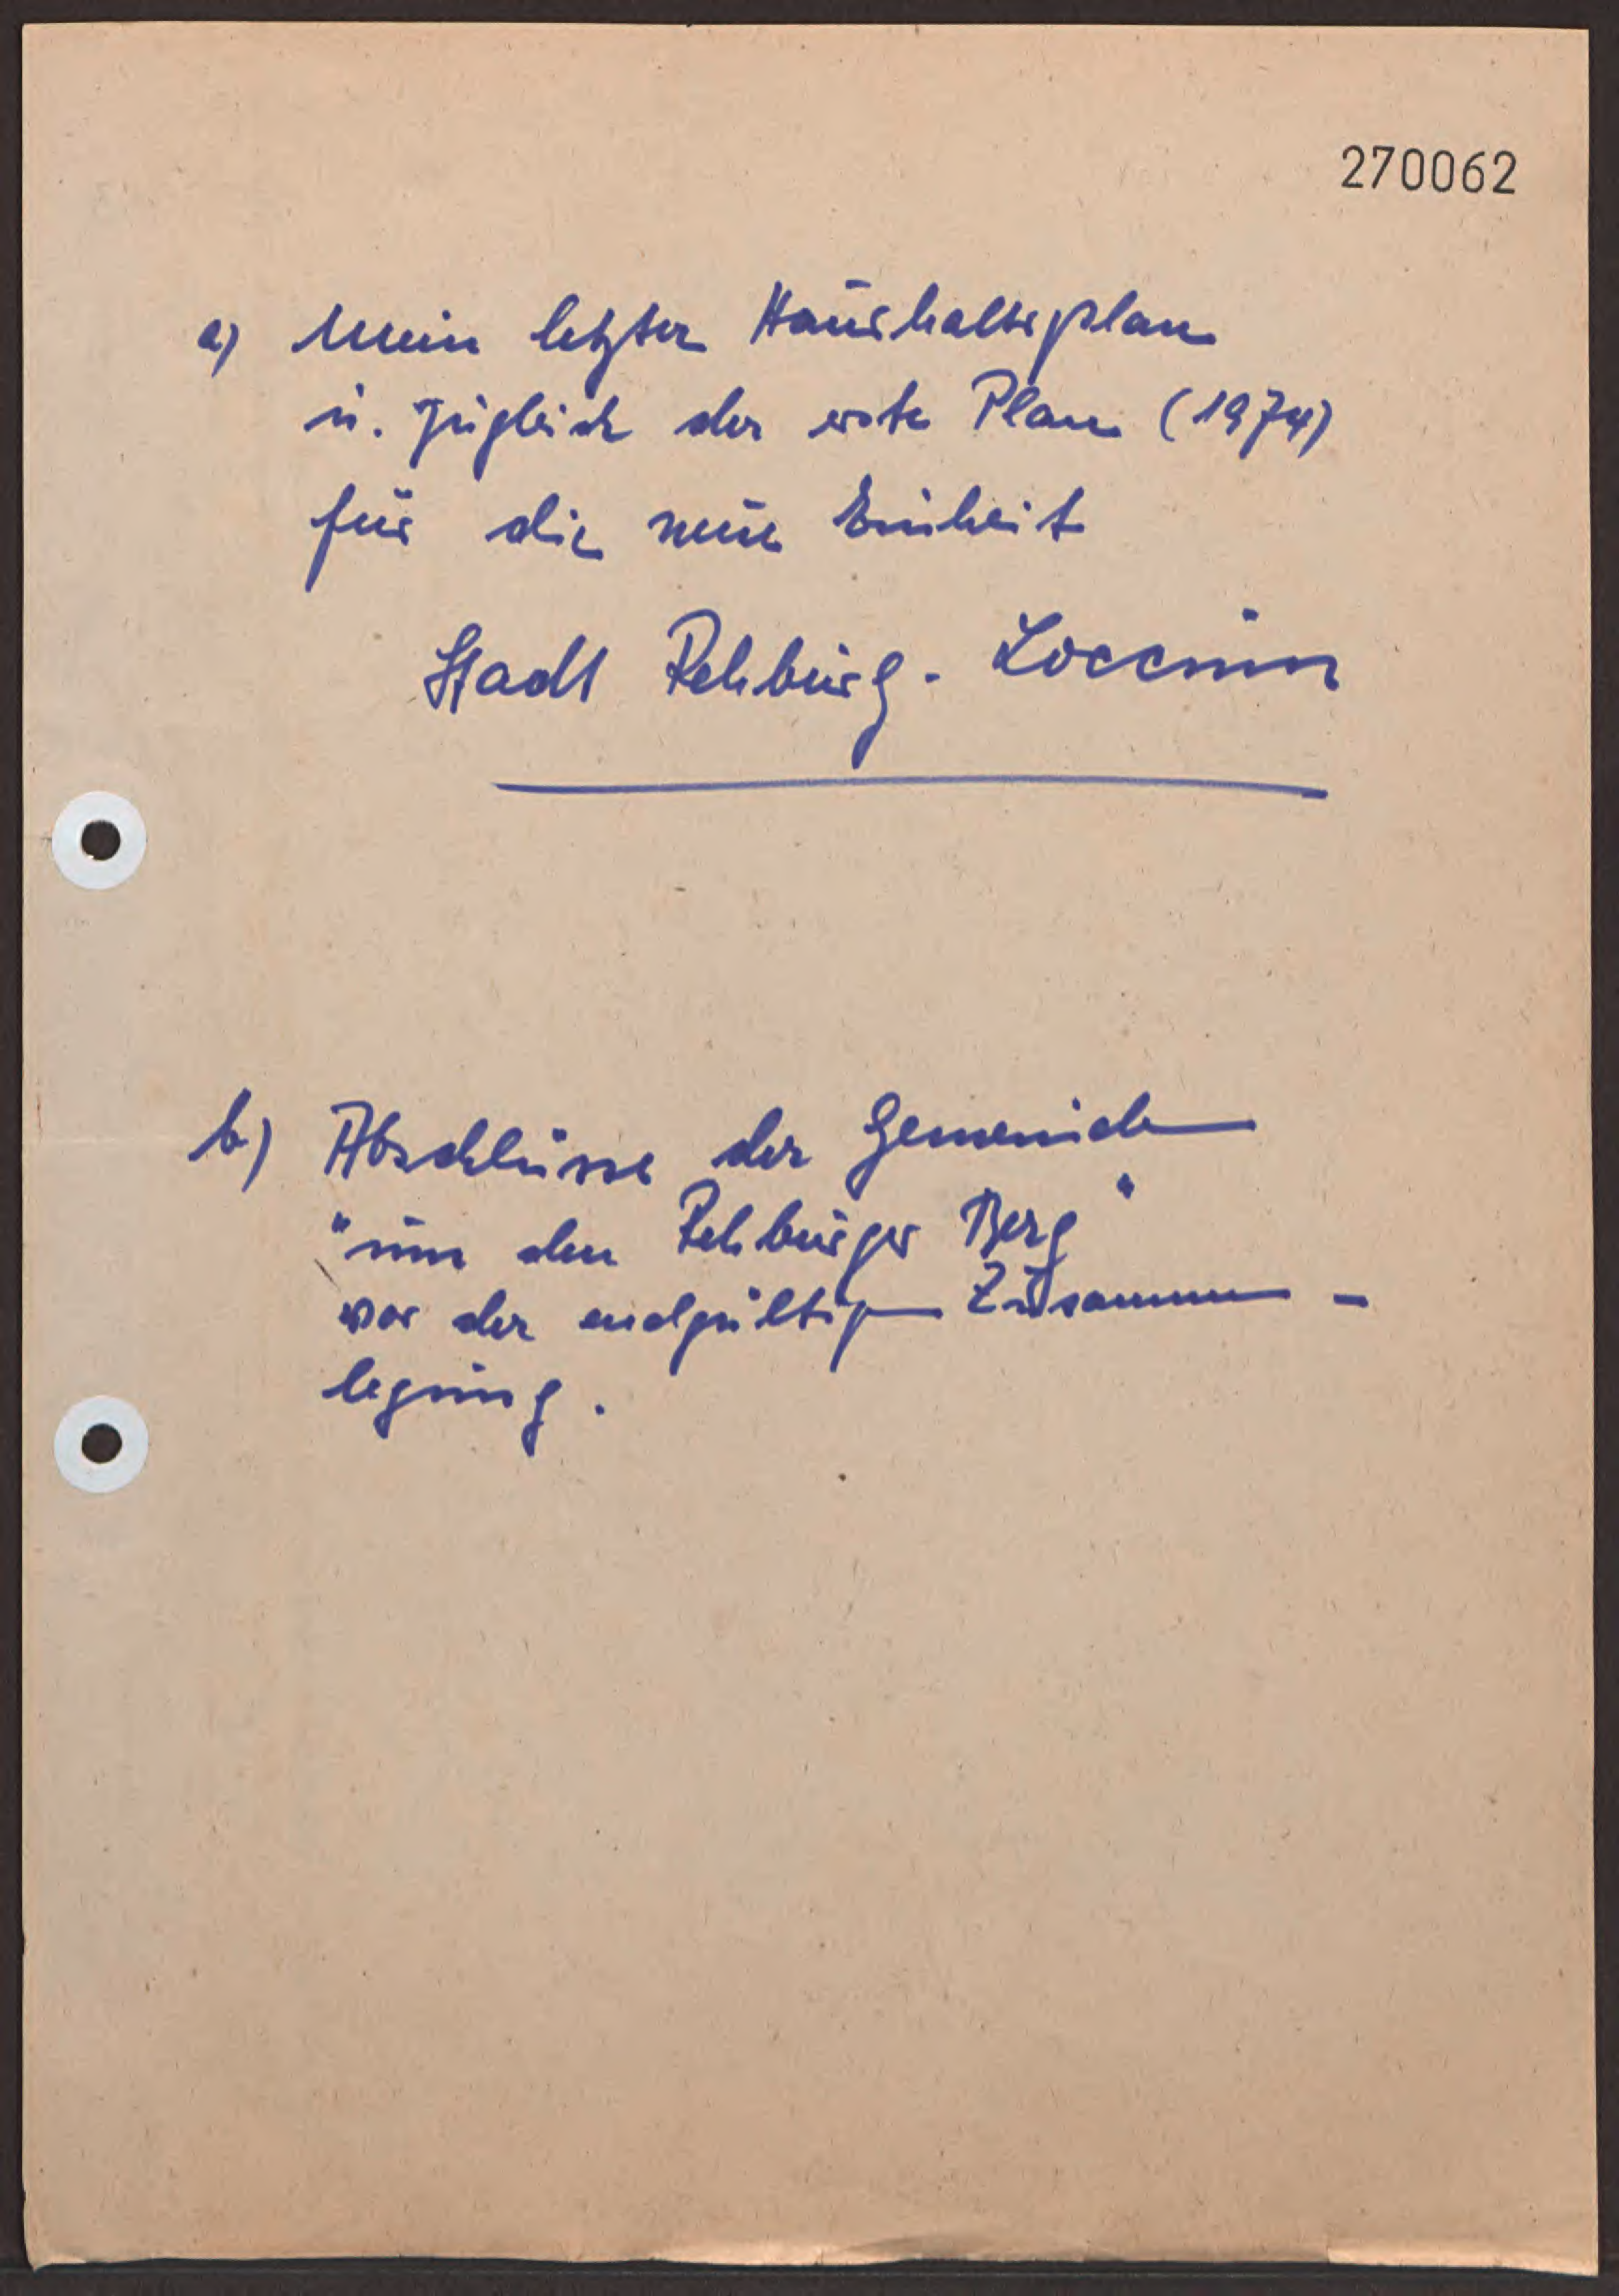 270062
a) Mein letzter Haushaltsplan
u. zugleich der erste Plan (1974)
für die neue Einheit
Stadt Rehburg-Loccum
b) Abschlüsse der Gemeinden
"um den Rehburger Berg"
vor der endgültigen Zusammen-
legung.